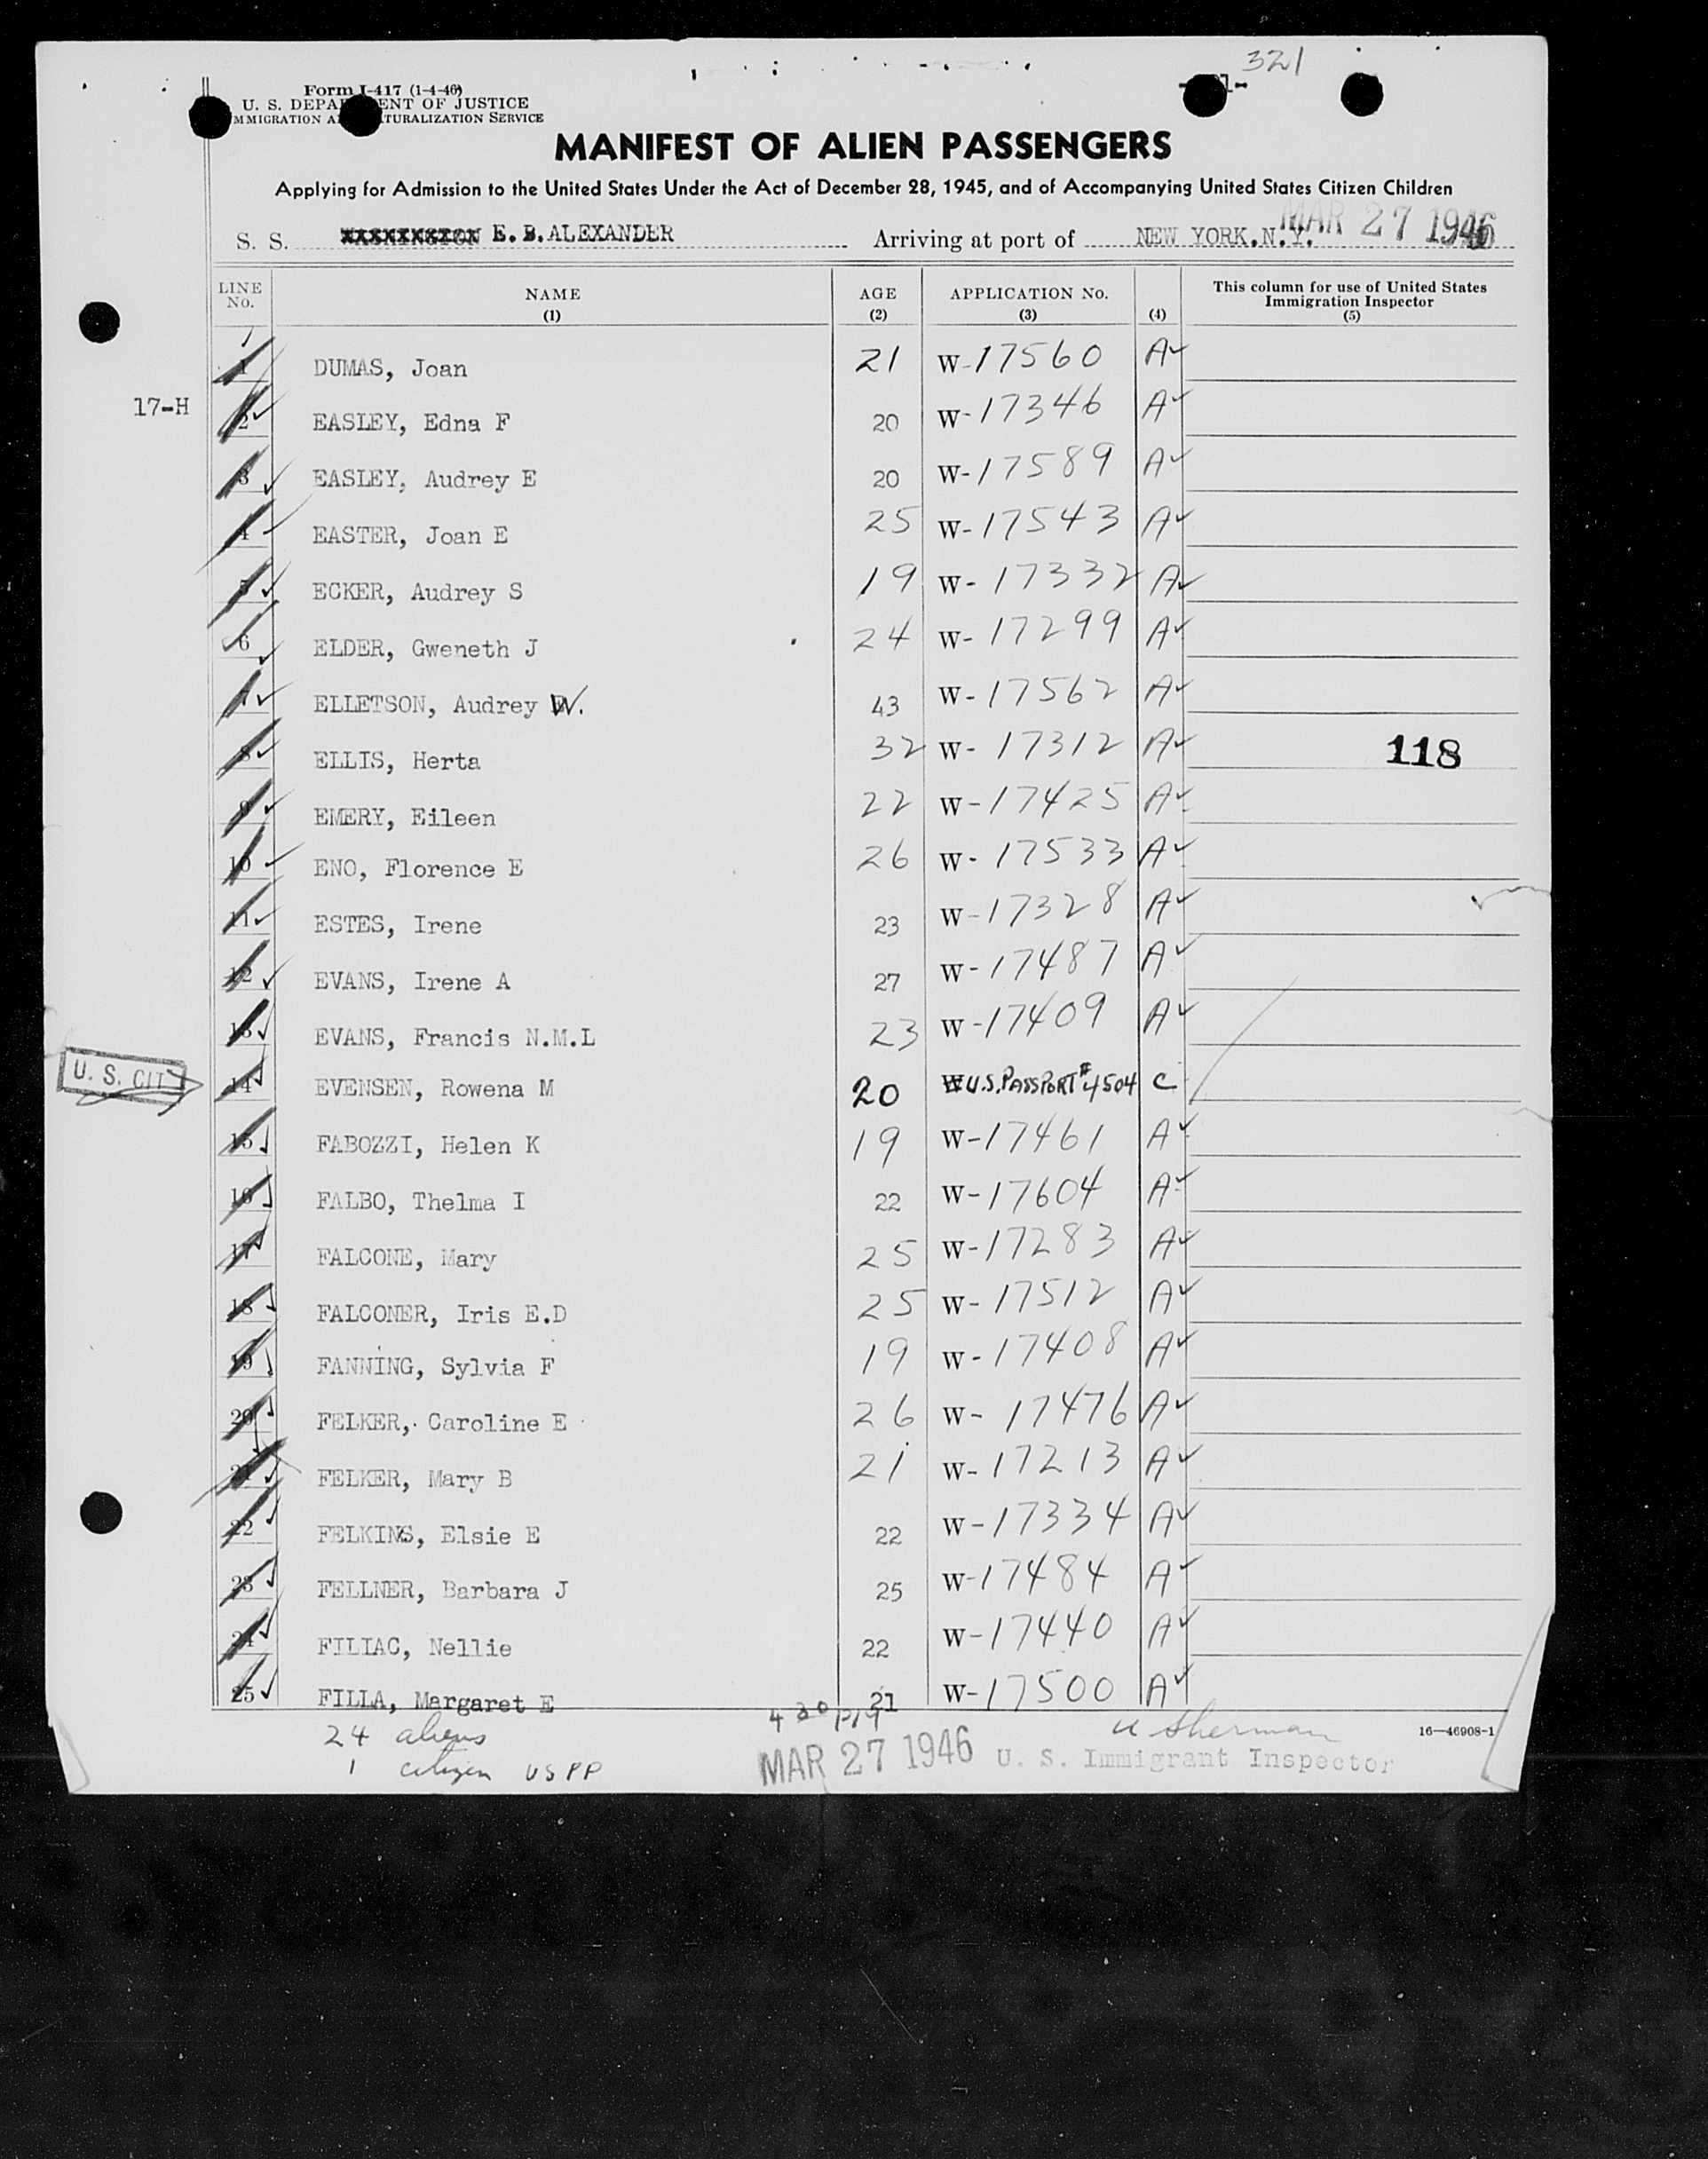 321
Form I-417 (1-4-46)
U. S. DEPA ENT OF JUSTICE
MMIGRATION A TURALIZATION SERVICE
MANIFEST OF ALIEN PASSENGERS
Applying for Admission to the United States Under the Act of December 28, 1945, and of Accompanying United States Citizen Children
S. S. WASHINGTON E. B. ALEXANDER Arriving at port of NEW YORK, N.Y. MAR 27 1946
LINE No. NAME (1) AGE (2) APPLICATION No. (3) (4) This column for use of United States Immigration Inspector (5)
1 DUMAS, Joan 21 W-17560 A✓
17-H
2 EASLEY, Edna F 20 W-17346 A✓
3 EASLEY, Audrey E 20 W-17589 A✓
4 EASTER, Joan E 25 W-17543 A✓
5 ECKER, Audrey S 19 W-17332 A✓
6 ELDER, Gweneth J 24 W-17299 A✓
7 ELLETSON, Audrey W. 43 W-17562 A✓
8 ELLIS, Herta 32 W-17312 A✓ 118
9 EMERY, Eileen 22 W-17425 A✓
10 ENO, Florence E 26 W-17533 A✓
11 ESTES, Irene 23 W-17328 A✓
12 EVANS, Irene A 27 W-17487 A✓
13 EVANS, Francis N.M.L 23 W-17409 A✓
U. S. CIT 14 EVENSEN, Rowena M 20 W U.S. PASSPORT #4504 C
15 FABOZZI, Helen K 19 W-17461 A✓
16 FALBO, Thelma I 22 W-17604 A✓
17 FALCONE, Mary 25 W-17283 A✓
18 FALCONER, Iris E.D 25 W-17512 A✓
19 FANNING, Sylvia F 19 W-17408 A✓
20 FELKER, Caroline E 26 W-17476 A✓
21 FELKER, Mary B 21 W-17213 A✓
22 FELKINS, Elsie E 22 W-17334 A✓
23 FELLNER, Barbara J 25 W-17484 A✓
24 FILIAC, Nellie 22 W-17440 A✓
25 FILLA, Margaret E 21 W-17500 A✓
24 aliens
1 citizen USPP
MAR 27 1946
Sherman
U. S. Immigrant Inspector
16—46908-1